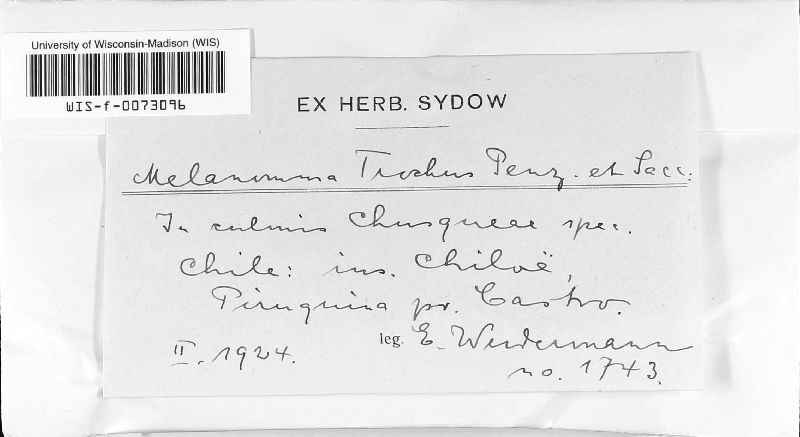 University of Wisconsin-Madison (WIS)
WIS-f-0073096
EX HERB. SYDOW
Melanomma Trochus Penz. et Sacc.
In culmis Chusqueae spec.
Chile: ins. Chiloë,
Piruquina pr. Castro.
II. 1924. leg. E. Werdermann
no. 1743.